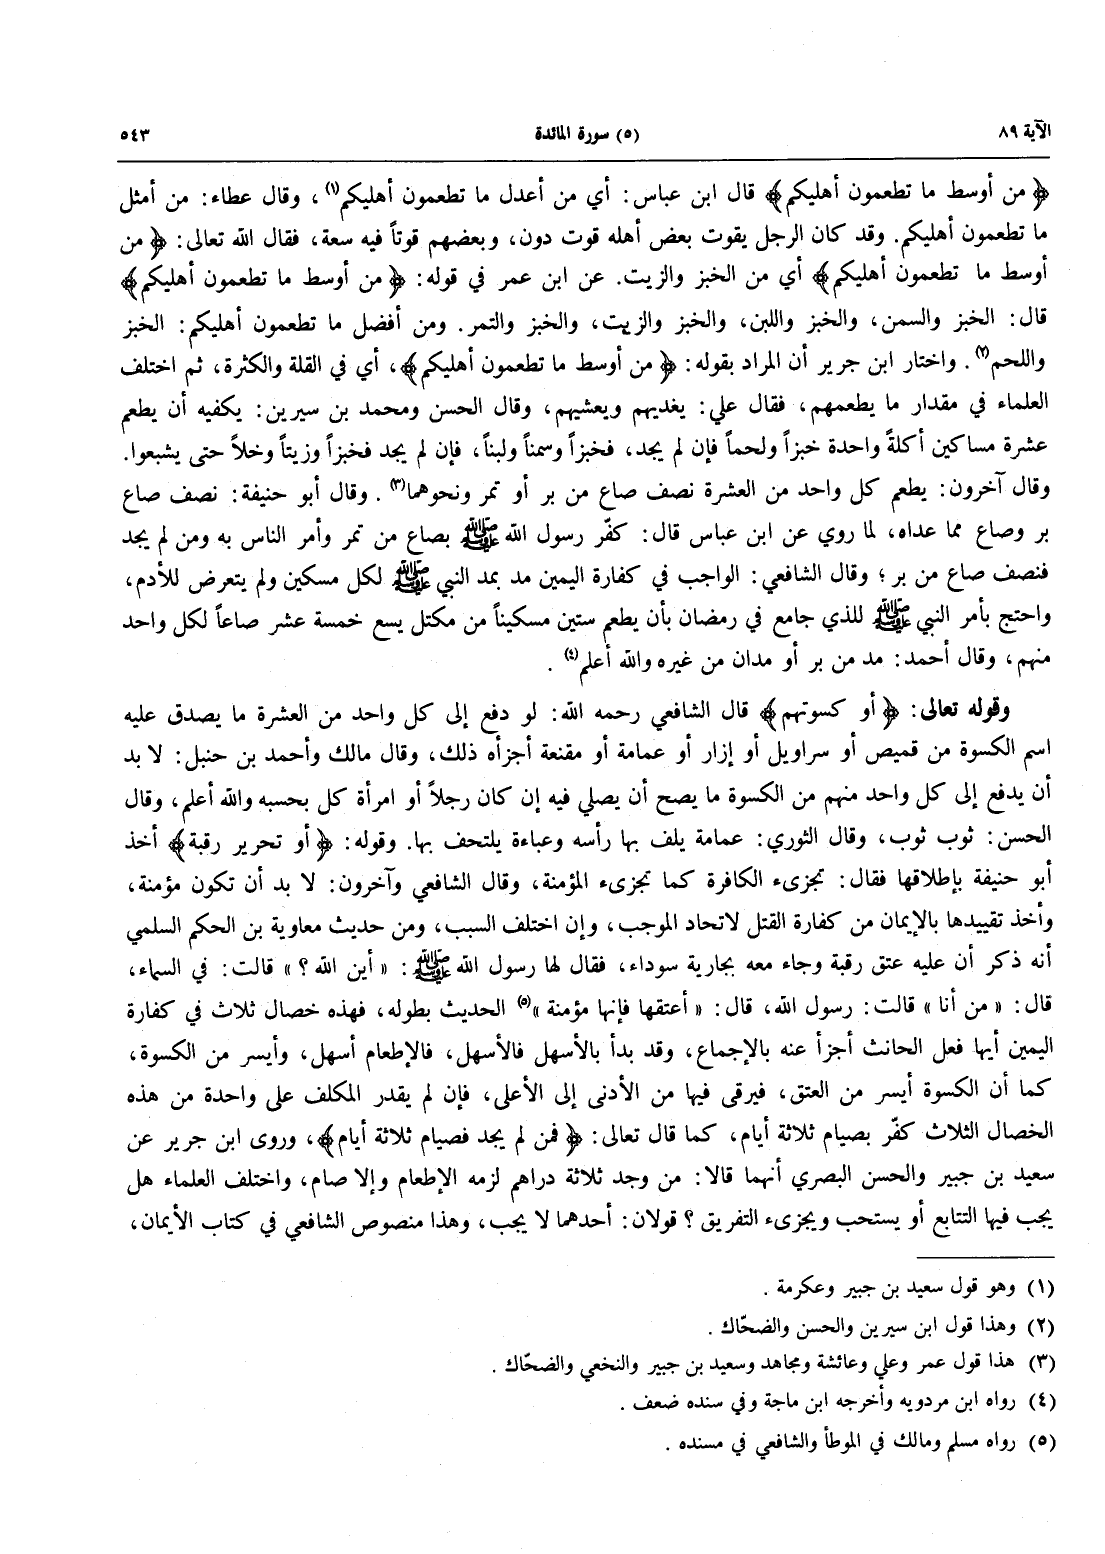 الآية ٨٩ (٥) سورة المائدة ٥٤٣
﴿من أوسط ما تطعمون أهليكم﴾ قال ابن عباس: أي من أعدل ما تطعمون أهليكم(١)، وقال عطاء: من أمثل
ما تطعمون أهليكم. وقد كان الرجل يقوت بعض أهله قوت دون، وبعضهم قوتاً فيه سعة، فقال الله تعالى: ﴿من
أوسط ما تطعمون أهليكم﴾ أي من الخبز والزيت. عن ابن عمر في قوله: ﴿من أوسط ما تطعمون أهليكم﴾
قال: الخبز والسمن، والخبز واللبن، والخبز والزيت، والخبز والتمر. ومن أفضل ما تطعمون أهليكم: الخبز
واللحم(٢). واختار ابن جرير أن المراد بقوله: ﴿من أوسط ما تطعمون أهليكم﴾، أي في القلة والكثرة، ثم اختلف
العلماء في مقدار ما يطعمهم، فقال علي: يغديهم ويعشيهم، وقال الحسن ومحمد بن سيرين: يكفيه أن يطعم
عشرة مساكين أكلةً واحدة خبزاً ولحماً فإن لم يجد، فخبزاً وسمناً ولبناً، فإن لم يجد فخبزاً وزيتاً وخلاً حتى يشبعوا.
وقال آخرون: يطعم كل واحد من العشرة نصف صاع من بر أو تمر ونحوهما(٣). وقال أبو حنيفة: نصف صاع
بر وصاع مما عداه، لما روي عن ابن عباس قال: كفّر رسول الله ﷺ بصاع من تمر وأمر الناس به ومن لم يجد
فنصف صاع من بر؛ وقال الشافعي: الواجب في كفارة اليمين مد بمد النبي ﷺ لكل مسكين ولم يتعرض للأدم،
واحتج بأمر النبي ﷺ للذي جامع في رمضان بأن يطعم ستين مسكيناً من مكتل يسع خمسة عشر صاعاً لكل واحد
منهم، وقال أحمد: مد من بر أو مدان من غيره والله أعلم(٤).
وقوله تعالى: ﴿أو كسوتهم﴾ قال الشافعي رحمه الله: لو دفع إلى كل واحد من العشرة ما يصدق عليه
اسم الكسوة من قميص أو سراويل أو إزار أو عمامة أو مقنعة أجزأه ذلك، وقال مالك وأحمد بن حنبل: لا بد
أن يدفع إلى كل واحد منهم من الكسوة ما يصح أن يصلي فيه إن كان رجلاً أو امرأة كل بحسبه والله أعلم، وقال
الحسن: ثوب ثوب، وقال الثوري: عمامة يلف بها رأسه وعباءة يلتحف بها. وقوله: ﴿أو تحرير رقبة﴾ أخذ
أبو حنيفة بإطلاقها فقال: تجزىء الكافرة كما تجزىء المؤمنة، وقال الشافعي وآخرون: لا بد أن تكون مؤمنة،
وأخذ تقييدها بالإيمان من كفارة القتل لاتحاد الموجب، وإن اختلف السبب، ومن حديث معاوية بن الحكم السلمي
أنه ذكر أن عليه عتق رقبة وجاء معه بجارية سوداء، فقال لها رسول الله ﷺ: «أين الله؟» قالت: في السماء،
قال: «من أنا» قالت: رسول الله، قال: «أعتقها فإنها مؤمنة»(٥) الحديث بطوله، فهذه خصال ثلاث في كفارة
اليمين أيها فعل الحانث أجزأ عنه بالإجماع، وقد بدأ بالأسهل فالأسهل، فالإطعام أسهل، وأيسر من الكسوة،
كما أن الكسوة أيسر من العتق، فيرقى فيها من الأدنى إلى الأعلى، فإن لم يقدر المكلف على واحدة من هذه
الخصال الثلاث كفّر بصيام ثلاثة أيام، كما قال تعالى: ﴿فمن لم يجد فصيام ثلاثة أيام﴾، وروى ابن جرير عن
سعيد بن جبير والحسن البصري أنهما قالا: من وجد ثلاثة دراهم لزمه الإطعام وإلا صام، واختلف العلماء هل
يجب فيها التتابع أو يستحب ويجزىء التفريق؟ قولان: أحدهما لا يجب، وهذا منصوص الشافعي في كتاب الأيمان،
(١) وهو قول سعيد بن جبير وعكرمة.
(٢) وهذا قول ابن سيرين والحسن والضحّاك.
(٣) هذا قول عمر وعلي وعائشة ومجاهد وسعيد بن جبير والنخعي والضحّاك.
(٤) رواه ابن مردويه وأخرجه ابن ماجة وفي سنده ضعف.
(٥) رواه مسلم ومالك في الموطأ والشافعي في مسنده.